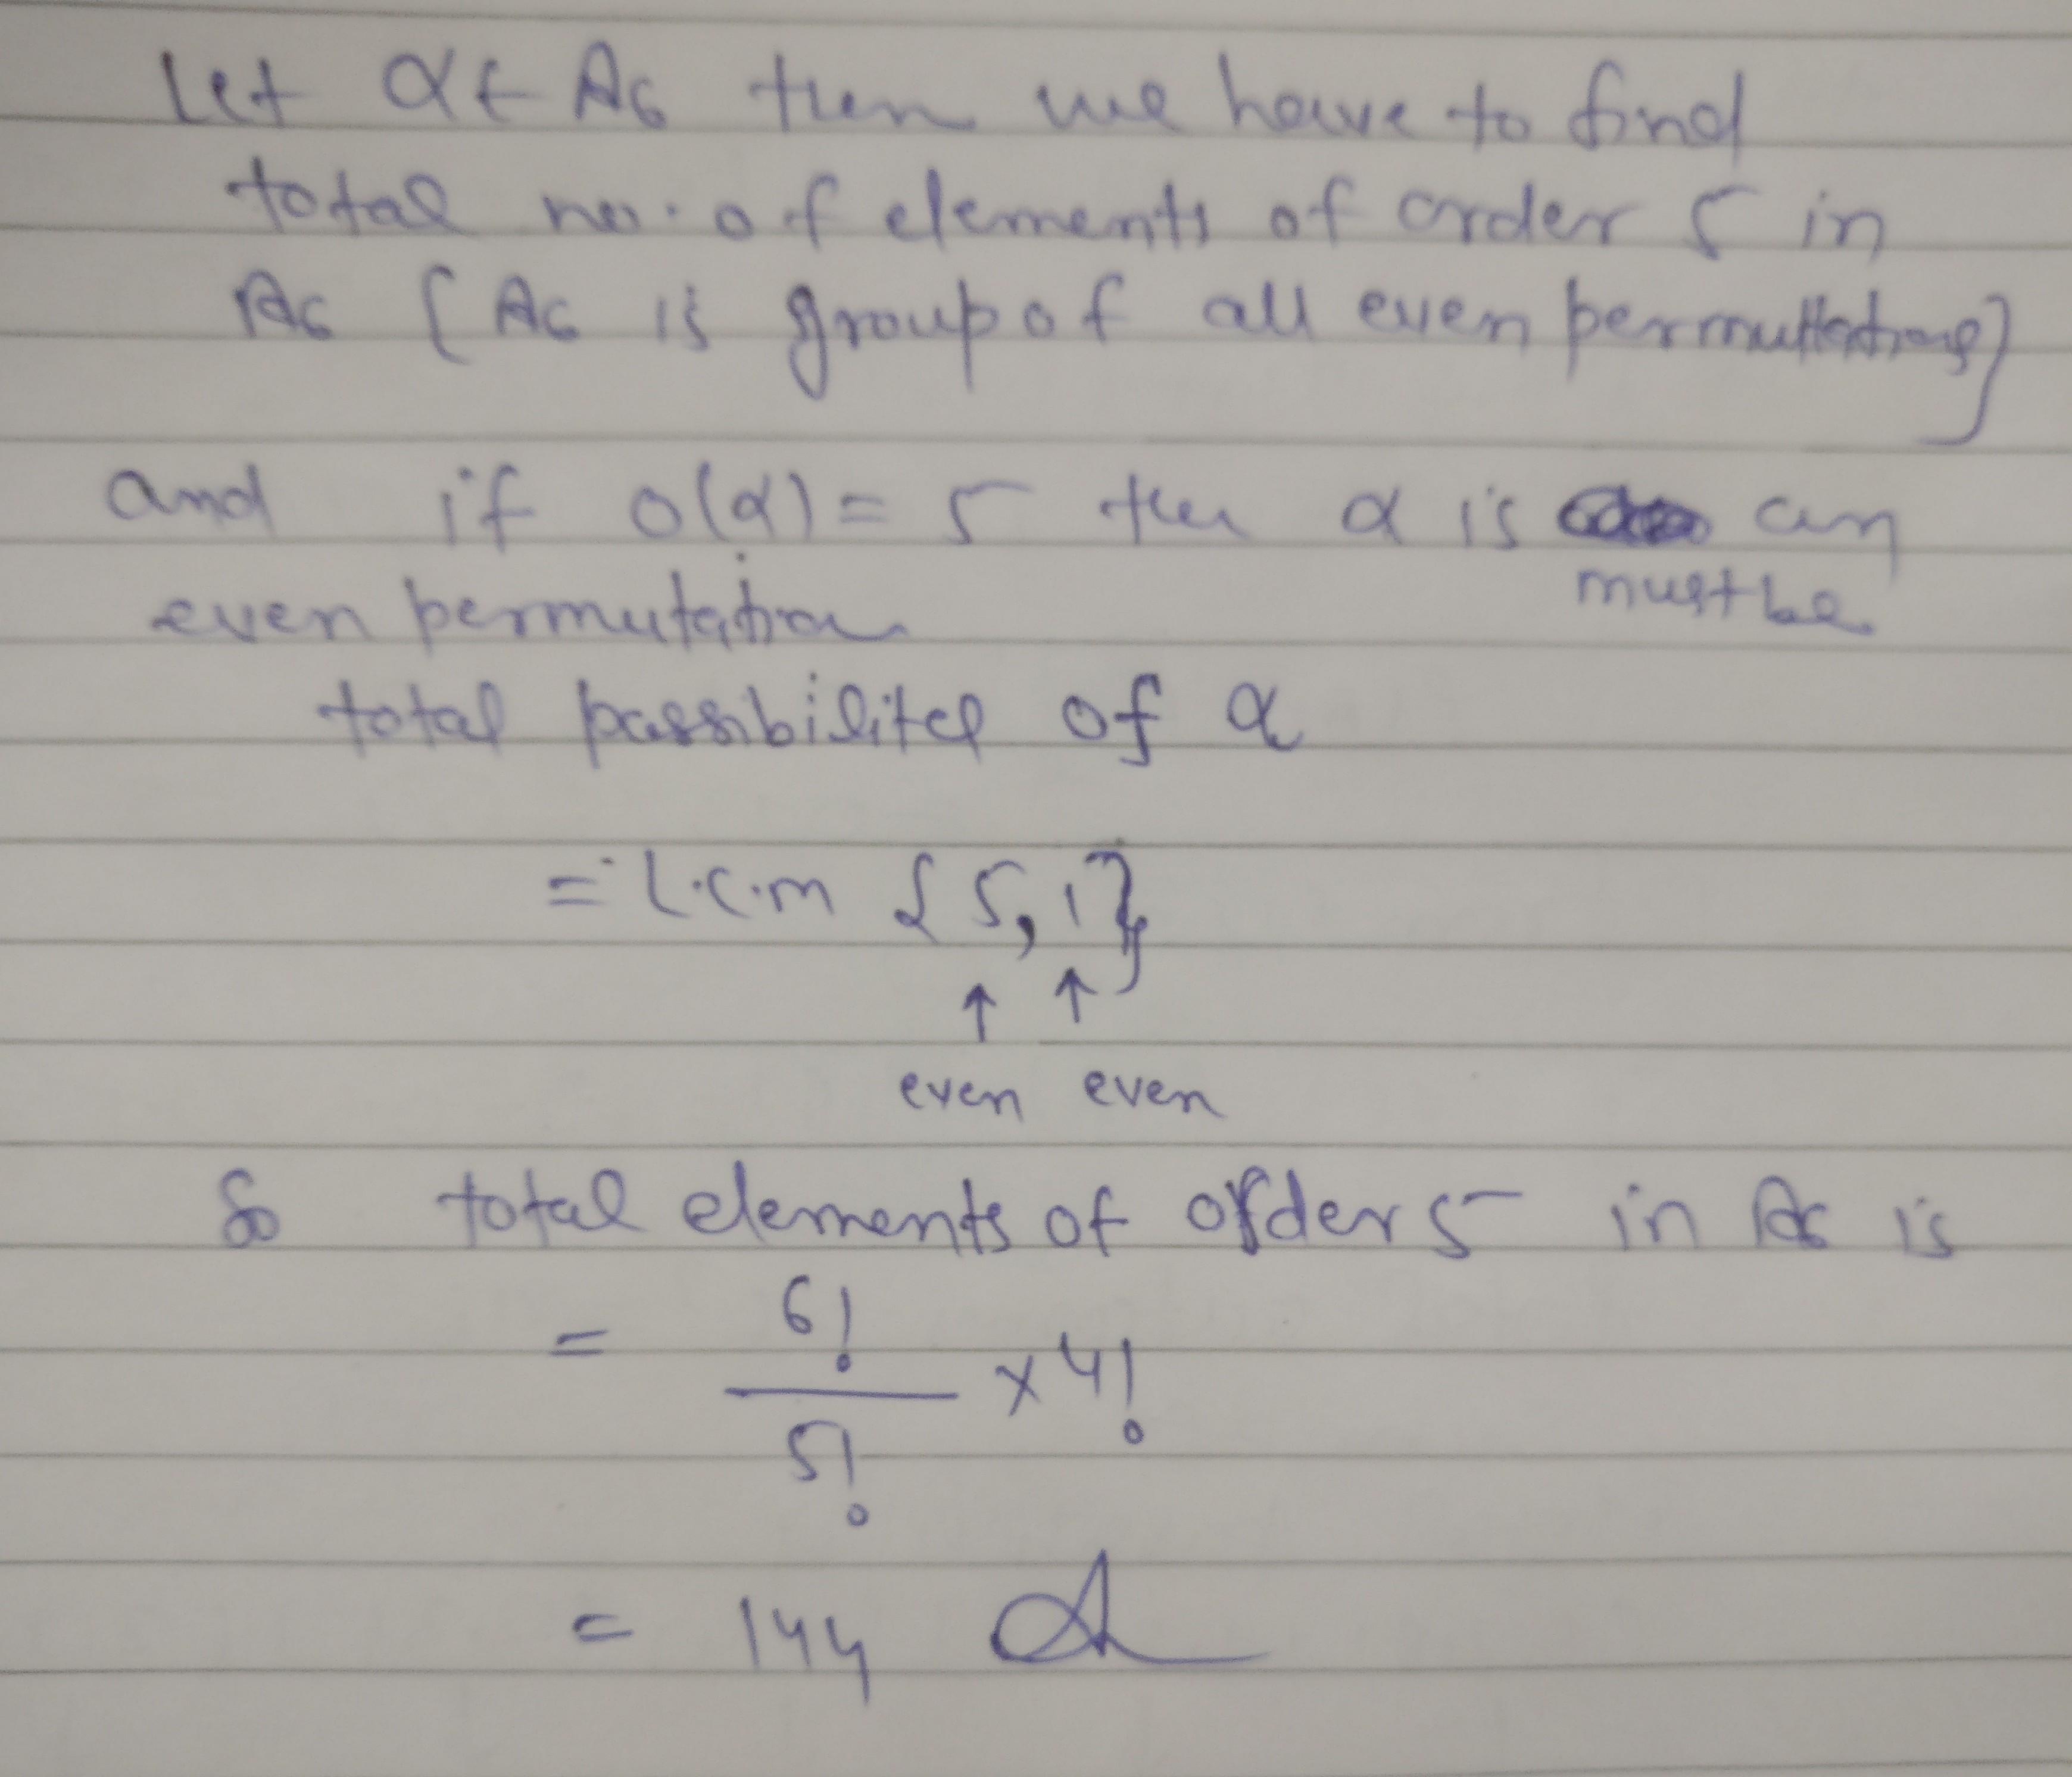 Let α ∈ A6 then we have to find
total no. of elements of order 5 in
A6 { A6 is group of all even permuttations}
and if o(α) = 5 then α is an
must be
even permutation
total possibilites of α
= l.c.m {5, 1}
↑ ↑
even even
So total elements of order 5 in A6 is
= 6! / 5! × 4!
= 144